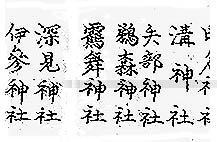 社
溝神社
矢部神社
鵜森神社
靏舞神社
深見神社
伊參神社